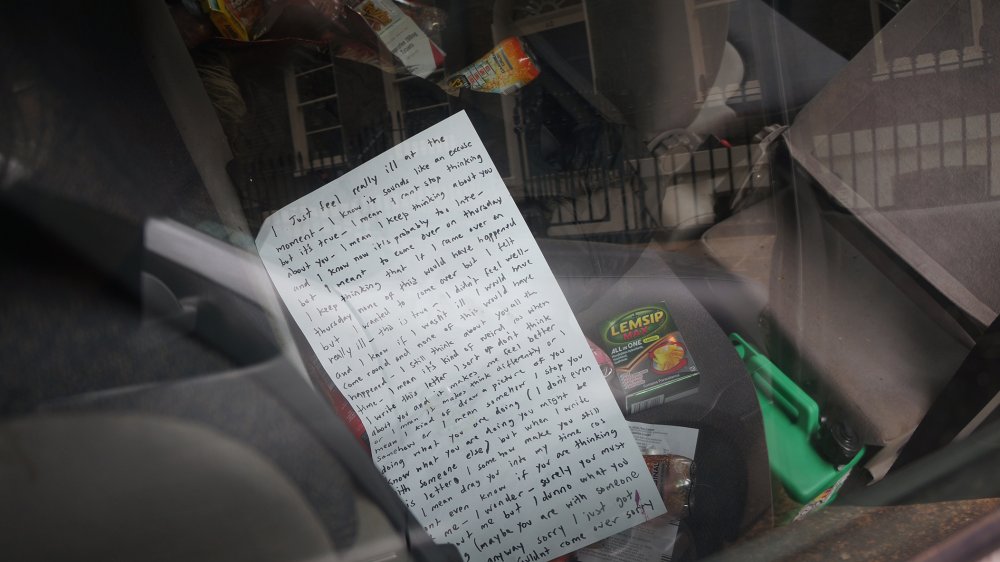 I Just feel really ill at the
moment - I know it sounds like an excuse
but it's true - I mean I cant stop thinking
about you - I mean I keep thinking about you
and I know now it's probably to late -
but I meant to come over on thursday
I keep thinking that if I came over on
thursday none of this would have happened
but I wanted to come over but I felt
really ill - this is true - I didn't feel well -
and I know if I wasn't ill I would have
come round and none of this would have
happened - I still think about you all the
time - I mean it's kind of weird, as when
I write this letter I sort of don't think
about you and it makes me feel better
or I mean it makes me think differently or
somehow I kind of draw a picture of you
or I mean somehow I stop you
doing what you are doing (I don't even
know what you are doing you might be
with someone else) but when I write
this letter I somehow make you still
I mean drag you into my time rot
ont even know if you are thinking
me - I wonder - surely you must
out me but I dunno what you
g (maybe you are with someone
anyway sorry I just got
ouldnt come over sorry
LEMSIP
MAX
ALL IN ONE